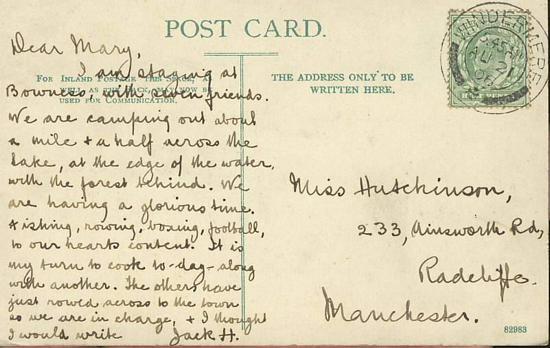 POST CARD.
Dear Mary,
I am staying at
FOR INLAND POSTAGE THIS SPACE, AS
Bowness, with seven friends.
WELL AS THE BACK, MAY NOW BE
USED FOR COMMUNICATION.
We are camping out about
a mile + a half across the
lake, at the edge of the water,
with the forest behind. We
are having a glorious time.
Fishing, rowing, boxing, football,
to our hearts content. It is
my turn to cook to-day-along
with another. The others have
just rowed across to the town
so we are in charge, + I thought
I would write Jack H.
THE ADDRESS ONLY TO BE
WRITTEN HERE.
WINDERMERE
JU 21
Miss Hutchinson,
233, Ainsworth Rd,
Radcliffe.
Manchester.
82983